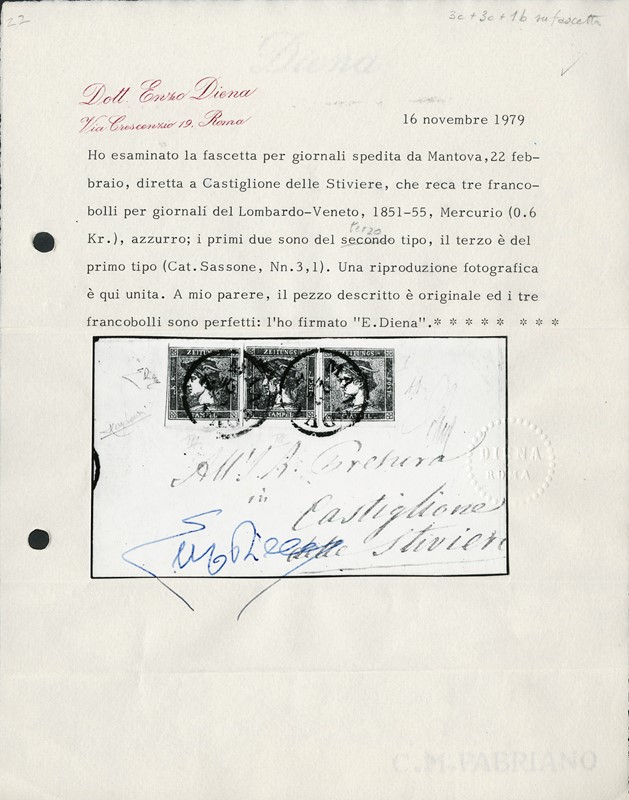 22
3c + 3c + 1b su fascetta
Diena
Dott. Enzo Diena
Via Crescenzio 19, Roma
16 novembre 1979
Ho esaminato la fascetta per giornali spedita da Mantova,22 feb-
braio, diretta a Castiglione delle Stiviere, che reca tre franco-
bolli per giornalí del Lombardo-Veneto, 1851-55, Mercurio (0.6
terzo
Kr.), azzurro; i primi due sono del secondo tipo, il terzo è del
primo tipo (Cat.Sassone, Nn.3,1). Una riproduzione fotografica
è qui unita. A mio parere, il pezzo descritto è originale ed i tre
francobolli sono perfetti: l'ho firmato "E.Diena".* * * * *  * * *
ZEITUNGS ZEITUNGS ZEITUNGS
STAMPEL STAMPEL STAMPEL
DIENA
ROMA
All'I. R. Pretura
in
Castiglione
delle Stiviere
Enzo Diena
C.M.FABRIANO